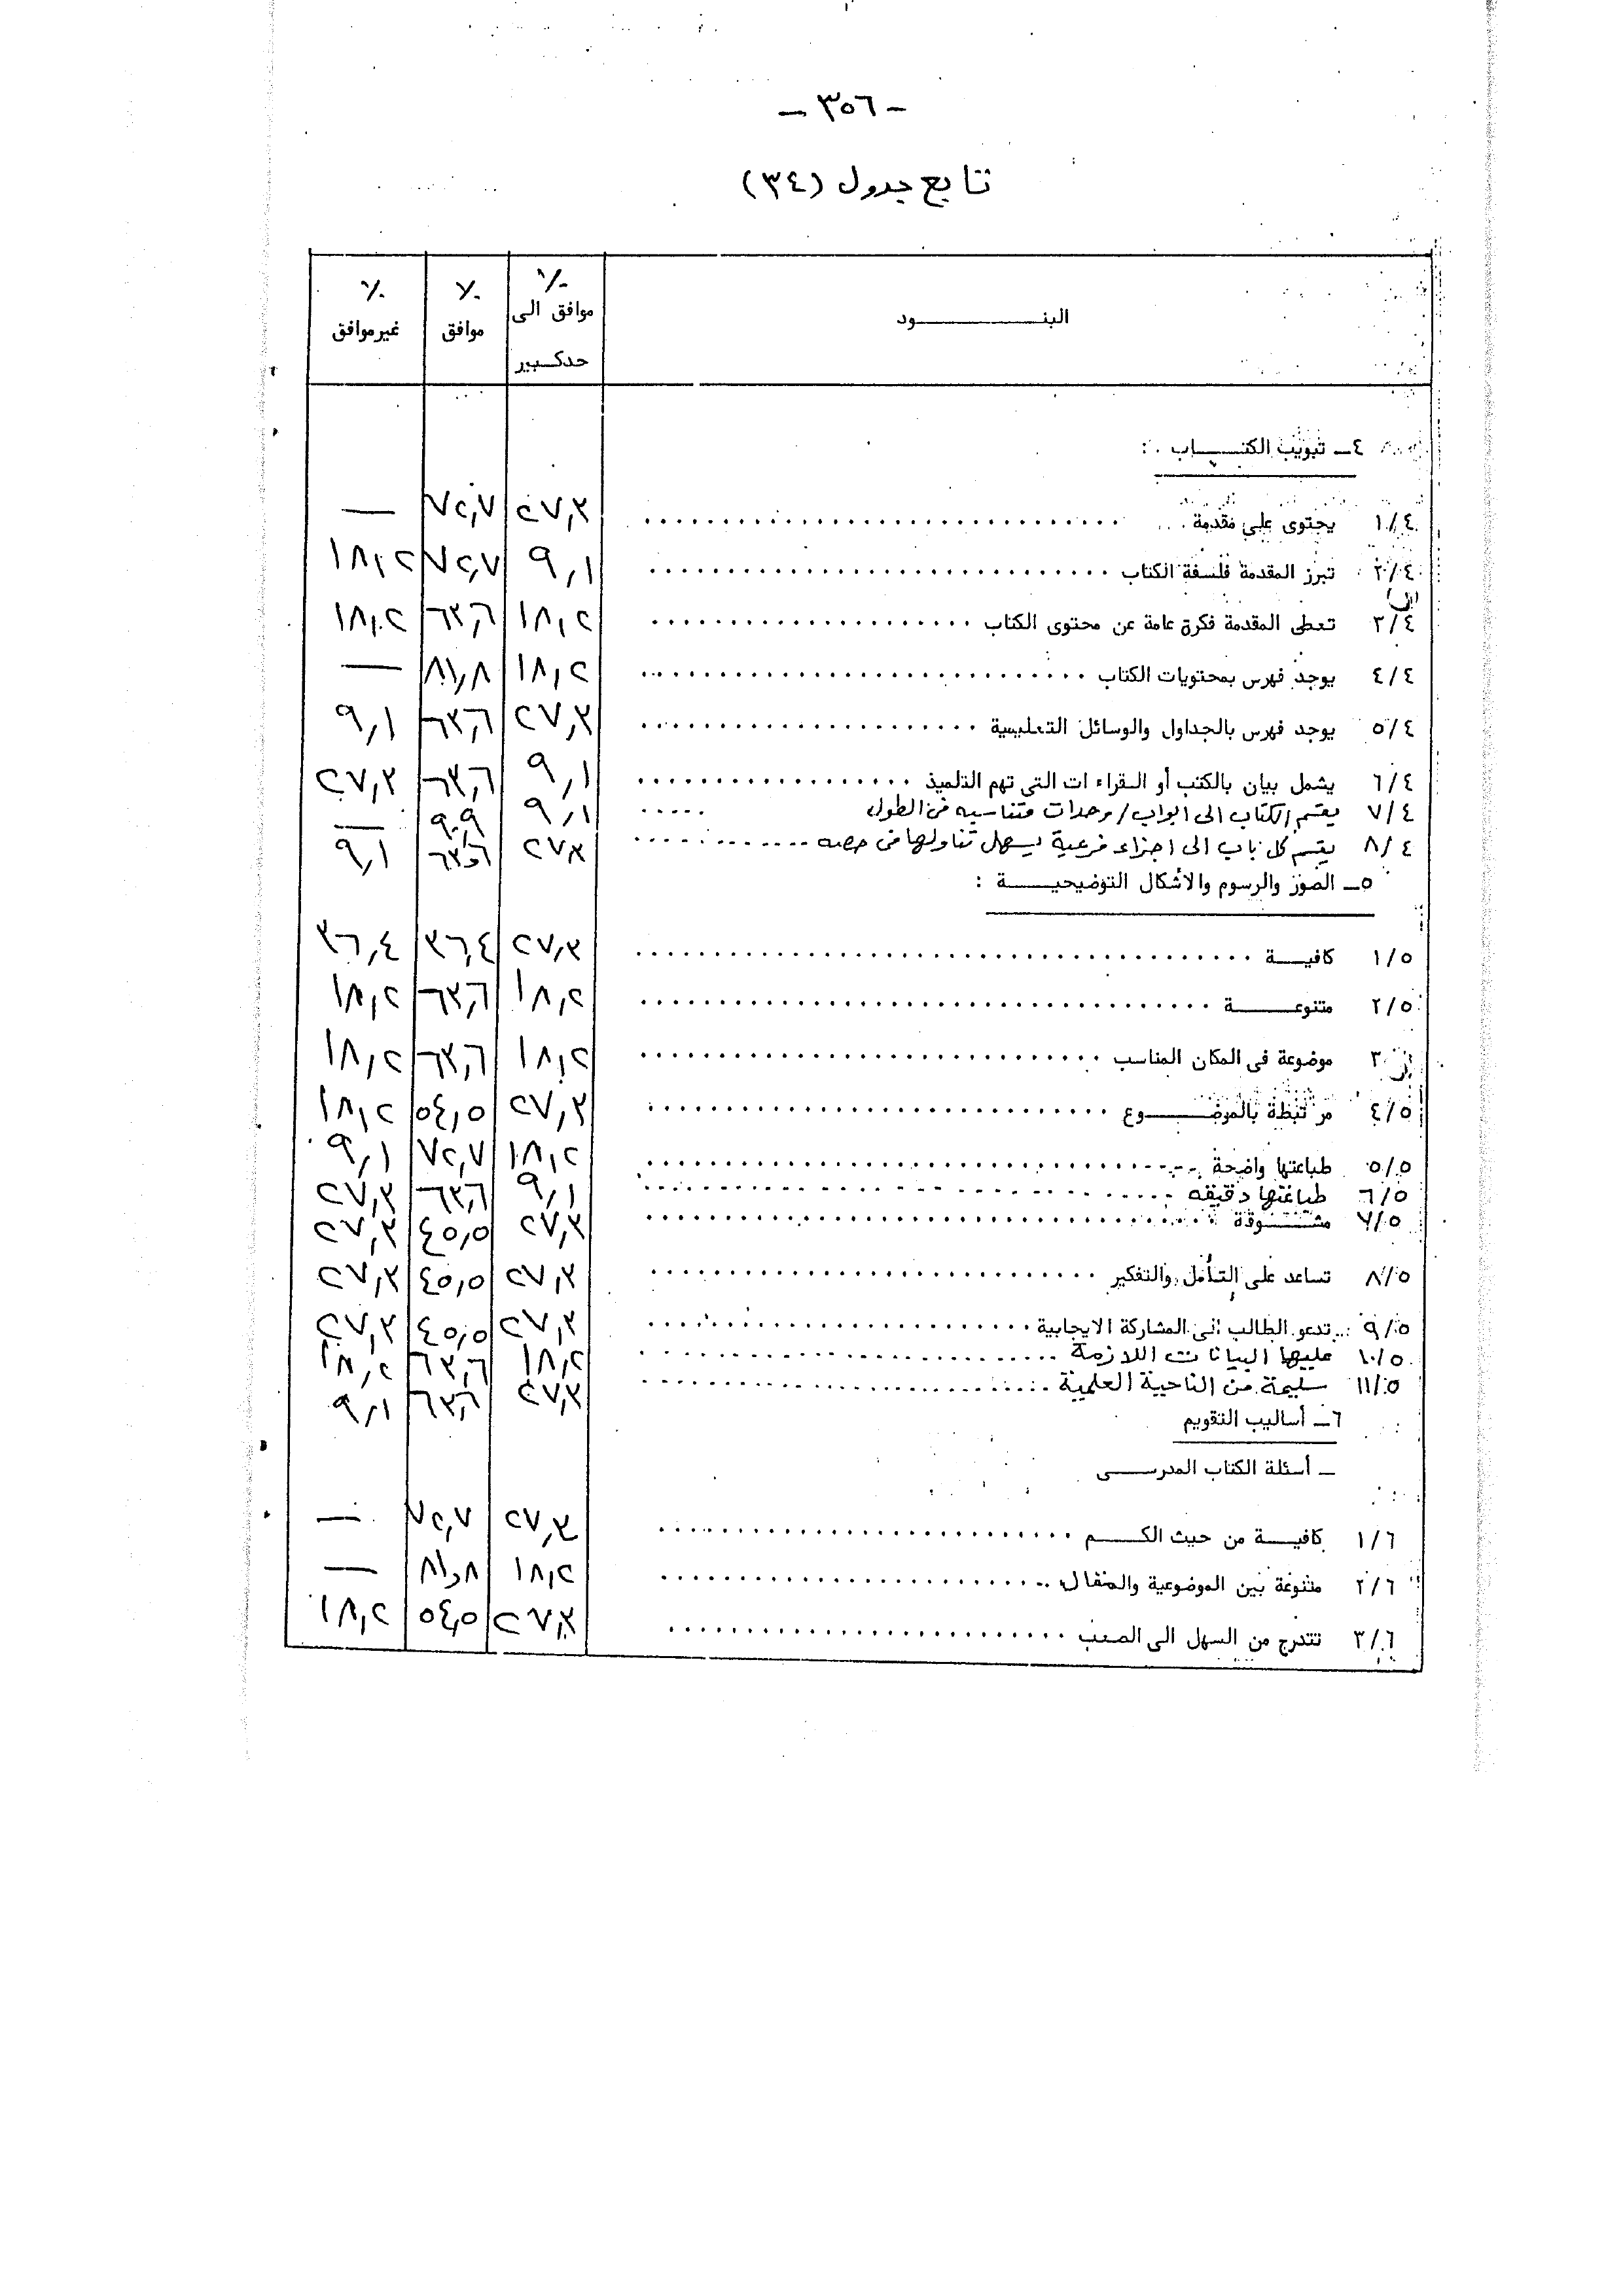 - ٣٥٦ -
تابع جدول (٣٤)
البنـــــــود ٪ موافق الى حد كـبير ٪ موافق ٪ غير موافق
٤ــ تبويب الكتـــاب :
١/٤ يحتوى على مقدمة ٢٧,٣ ٧٢,٧ —
٢/٤ تبرز المقدمة فلسفة الكتاب ٩,١ ٧٢,٧ ١٨,٢
٣/٤ تعطى المقدمة فكرة عامة عن محتوى الكتاب ١٨,٢ ٦٣,٦ ١٨,٢
٤/٤ يوجد فهرس بمحتويات الكتاب ١٨,٢ ٨١,٨ —
٥/٤ يوجد فهرس بالجداول والوسائل التعليمية ٢٧,٣ ٦٣,٦ ٩,١
٦/٤ يشمل بيان بالكتب أو القراءات التى تهم التلميذ ٩,١ ٦٣,٦ ٢٧,٣
٧/٤ يقسم الكتاب الى ابواب/وحدات متناسبه فى الطول ٩,١ ٩٠,٩ —
٨/٤ يقسم كل باب الى اجزاء فرعية يسهل تناولها فى حصه ٢٧,٣ ٦٣,٦ ٩,١
٥ــ الصور والرسوم والأشكال التوضيحيـــة :
١/٥ كافيــة ٢٧,٣ ٣٦,٤ ٣٦,٤
٢/٥ متنوعـــــة ١٨,٢ ٦٣,٦ ١٨,٢
٣ موضوعة فى المكان المناسب ١٨,٢ ٦٣,٦ ١٨,٢
٤/٥ مرتبطة بالموضـــــوع ٢٧,٣ ٥٤,٥ ١٨,٢
٥/٥ طباعتها واضحة ١٨,٢ ٧٢,٧ ٩,١
٦/٥ طباعتها دقيقه ٩,١ ٦٣,٦ ٢٧,٣
٧/٥ مشــــوقة ٢٧,٣ ٤٥,٥ ٢٧,٣
٨/٥ تساعد على التأمل والتفكير ٢٧,٣ ٤٥,٥ ٢٧,٣
٩/٥ تدعو الطالب الى المشاركة الايجابية ٢٧,٣ ٤٥,٥ ٢٧,٣
١٠/٥ عليها البيانات اللازمة ١٨,٢ ٦٣,٦ ١٨,٢
١١/٥ سليمة من الناحية العلمية ٢٧,٣ ٦٣,٦ ٩,١
٦ــ أساليب التقويم
ــ أسئلة الكتاب المدرســـى
١/٦ كافيــة من حيث الكـــم ٢٧,٣ ٧٢,٧ —
٢/٦ متنوعة بين الموضوعية والمقال ١٨,٢ ٨١,٨ —
٣/٦ تتدرج من السهل الى الصعب ٢٧,٣ ٥٤,٥ ١٨,٢